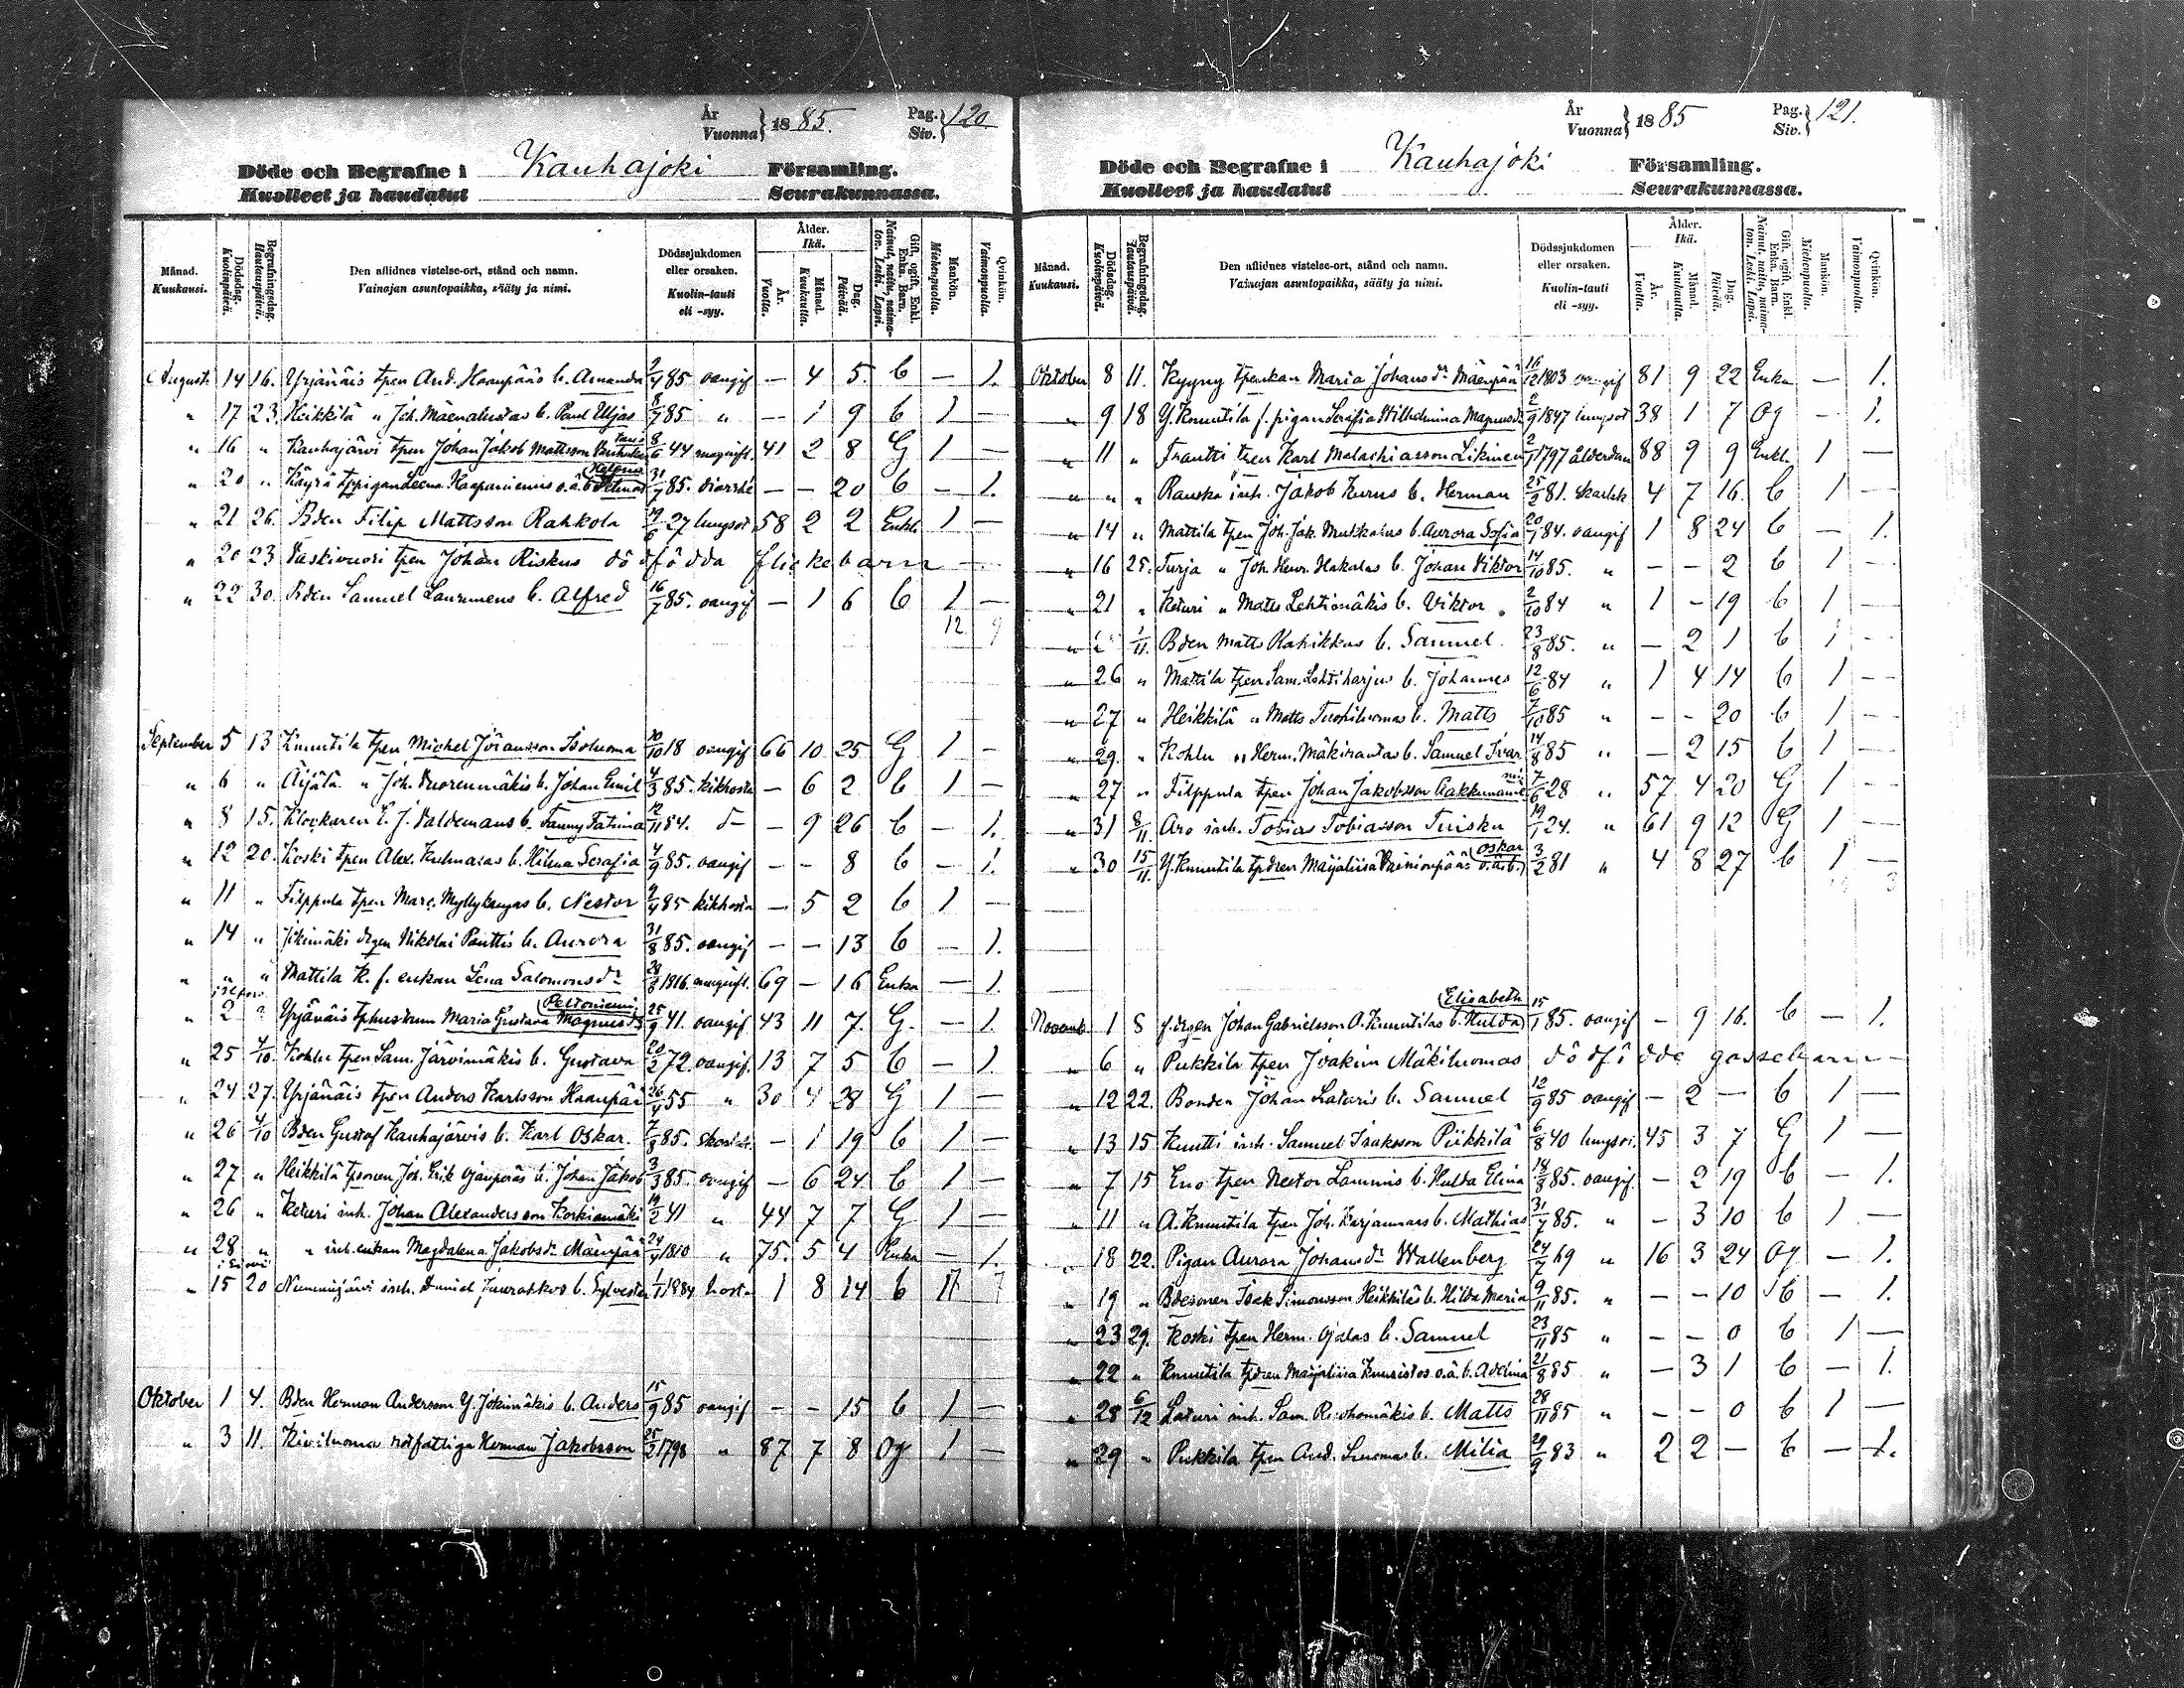 År
Vuonna } 1885.
Pag.
Siv. } 120
Döde och Begrafne i Kauhajoki Församling.
Kuolleet ja haudatut Seurakunnassa.
Månad. Kuukausi.
Dödsdag. Kuolinpäivä.
Begrafningsdag. Hautauspäivä.
Den aflidnes vistelse-ort, stånd och namn.
Vainajan asuntopaikka, sääty ja nimi.
Dödssjukdomen eller orsaken.
Kuolin-tauti eli -syy.
Ålder. Ikä.
År. Vuotta.
Månad. Kuukautta.
Dag. Päivää.
Gift, ogift, Enkl. Enka. Barn.
Nainut, naitu, naimaton. Leski. Lapsi.
Mankön. Miehenpuolta.
Qvinkön. Vaimonpuolta.
Augusti 14 16. Yrjänäis tpen And. Haapääs b. Amanda 2/4 85 oangif — 4 5. b — 1.
" 17 23. Heikkilä " Joh. Mäenalustas b. Paul Eljas 8/7 85 " — 1 9 b 1 —
" 16 " Kauhajärvi tpen Johan Jakob Mattsson 8/6 44 magsift. 41 2 8 G 1 —
" 20 " Käyrä tppigan Leena o.ä.b. Helena 31/7 85. — — 20 b — 1.
" 21 26. Bden Filip Mattsson Rahkola 19/6 27 lungsot 58 2 2 Enkl. 1 —
" 20 23 Vaskivuori tpen Johan Riskus dödfödda flickebarn —
" 22 30. Bden Samuel Laurunens b. Alfred 16/7 85. oangif — 1 6 b 1 —
12 9
September 5 13 Knuutila tpen Michel Jöransson Isoluoma 10/10 18 oangif 66 10 25 G 1 —
" 6 " Äijälä " Joh. Vuorenmäkis b. Johan Emil 4/3 85. kikhosta — 6 2 b 1 —
" 8 15. Klockaren E. J. Valdemans b. Fanny Fatima 12/11 84. d— — 9 26 b — 1.
" 12 20. Koski tpen Alex. Kuhnalas b. Hilma Serafia 4/9 85. oangif — — 8 b — 1.
" 11 " Filppula tpen Marc. Myllykangas b. Nestor 9/4 85 kikhosta — 5 2 b 1 —
" 14 " Jokimäki drgen Nikolai Panttis b. Aurora 31/8 85. oangif — — 13 b — 1.
" " " Mattila K. f. enkan Lena Salomonsdr 28/8 1816. 69 — 16 Enka — 1.
" 2 " Yrjänäis tphustrun Maria Gustava Magnusdr Peltoniemi 25/9 41. oangif 43 11 7. G. — 1.
" 25 4/10. Kohlu tpen Sam. Järvimäkis b. Gustava 20/2 72. oangif. 13 7 5 b — 1.
" 24 27. Yrjänäis tpen Anders Karlsson Haapää 26/4 55 " 30 4 28 G 1 —
" 26 4/10 Bden Gustaf Kauhajärvis b. Karl Oskar. 7/8 85. — 1 19 b 1 —
" 27 " Heikkilä tpsonen Joh. Erik Ojanperäs b. Johan Jakob 3/3 85. oangif — 6 24 b 1 —
" 26 " Keturi inh. Johan Alexandersson Koskimäki 19/2 41 " 44 7 7 G 1 —
" 28 " " inh. enkan Magdalena Jakobsdr Mäenpää 24/4 1810 " 75. 5 4 Enka — 1.
" 15 20 Nummijärvi inh. Daniel b. Sylvester 1/1 1884 hosta 1 8 14 b 1
Oktober 1 4. Bden Herman Andersson Y. Jokimäkis b. Anders 15/9 85 oangif — — 15 b 1 —
" 3 11. Kiviluoma rotfattiga Herman Jakobsson 25/2 1798 " 87 7 8 Og 1 —
År
Vuonna } 1885
Pag.
Siv. } 121.
Döde och Begrafne i Kauhajoki Församling.
Kuolleet ja haudatut Seurakunnassa.
Månad. Kuukausi.
Dödsdag. Kuolinpäivä.
Begrafningsdag. Hautauspäivä.
Den aflidnes vistelse-ort, stånd och namn.
Vainajan asuntopaikka, sääty ja nimi.
Dödssjukdomen eller orsaken.
Kuolin-tauti eli -syy.
Ålder. Ikä.
År. Vuotta.
Månad. Kuukautta.
Dag. Päivää.
Gift, ogift, Enkl. Enka. Barn.
Nainut, naitu, naimaton. Leski. Lapsi.
Mankön. Miehenpuolta.
Qvinkön. Vaimonpuolta.
Oktober 8 11. Kyyny tpenkan Maria Johansdr Mäenpää 16/12 1803 oangif 81 9 22 Enka — 1.
" 9 18 Y. Knuutila f. pigan Serafia Wilhelmina Magnusdr 2/9 1847 lungsot 38 1 7 Og — 1.
" 11 " Frantti tpen Karl Malachiasson Likinen 2/1 1797 ålderdom 88 9 9 Enkl. 1 —
" " " Rauska inh. Jakob Kurus b. Herman 25/2 81. skarlak 4 7 16. b 1 —
" 14 " Mattila tpen Joh. Jak. b. Aurora Sofia 20/1 84. oangif 1 8 24 b — 1.
" 16 25. Turja " Joh. Henr. Hakalas b. Johan Viktor 14/10 85. " — — 2 b 1 —
" 21 " Keturi " Matts Lehtimäkis b. Viktor 2/10 84 " 1 — 19 b 1 —
" 1/11. Bden Matts Rahikkas b. Samuel 23/8 85. " — 2 1 b 1 —
" 26 " Mattila tpen Sam. Lehtiharjus b. Johannes 12/6 84 " 1 4 14 b 1 —
" 27 " Heikkilä " Matts Tuohiluomas b. Matts 7/10 85 " — — 20 b 1 —
" 29 " Kohlu " Herm. Mäkirantas b. Samuel Ivar 14/8 85 " — 2 15 b 1 —
" 27 " Filppula tpen Johan Jakobsson 7/6 28 " 57 4 20 G 1 —
" 31 8/11. Aro inh. Tobias Tobiasson Tuisku 19/1 24. " 61 9 12 G 1 —
" 30 15/11. Y. Knuutila tpdren Maijaliisa Vainionpääs o.ä.b. Oskar 3/2 81 " 4 8 27 b 1 —
Novemb 1 8 f. drgen Johan Gabrielsson A. Knuutilas b. Hulda Elisabeth 15/1 85. oangif — 9 16. b — 1.
" 6 " Pukkila tpen Joakim Mäkiluomas dödfödde gossebarn —
" 12 22. Bonden Johan Laturis b. Samuel 12/9 85 oangif — 2 — b 1 —
" 13 15 Knutti inh. Samuel Isaksson Piikkilä 6/8 40 45 3 7 G 1 —
" 7 15 Eno tpen Nestor Lamminis b. Hulda Elina 18/8 85. oangif. — 2 19 b — 1.
" 11 " A. Knuutila tpen Joh. Karjanmaas b. Mathias 31/7 85. " — 3 10 b 1 —
" 18 22. Pigan Aurora Johansdr Wallenberg 24/7 69 " 16 3 24 Og — 1.
" 19 " Bdesonen Isak Simonsson Heikkiläs b. Hilda Maria 9/11 85. " — — 10 b — 1.
" 23 29. Koski tpen Herm. Ojalas b. Samuel 23/11 85 " — — 0 b 1 —
" 22 " Knuutila tpdren Maijaliisa Knuuistos o.ä.b. Adelina 21/8 85 " — 3 1 b — 1.
" 28 6/12 Laturi inh. Sam. b. Matts 28/11 85 " — — 0 b 1 —
" 29 " Pukkila tpen And. Luomas b. Milia 29/9 83 " 2 2 — b — 1.